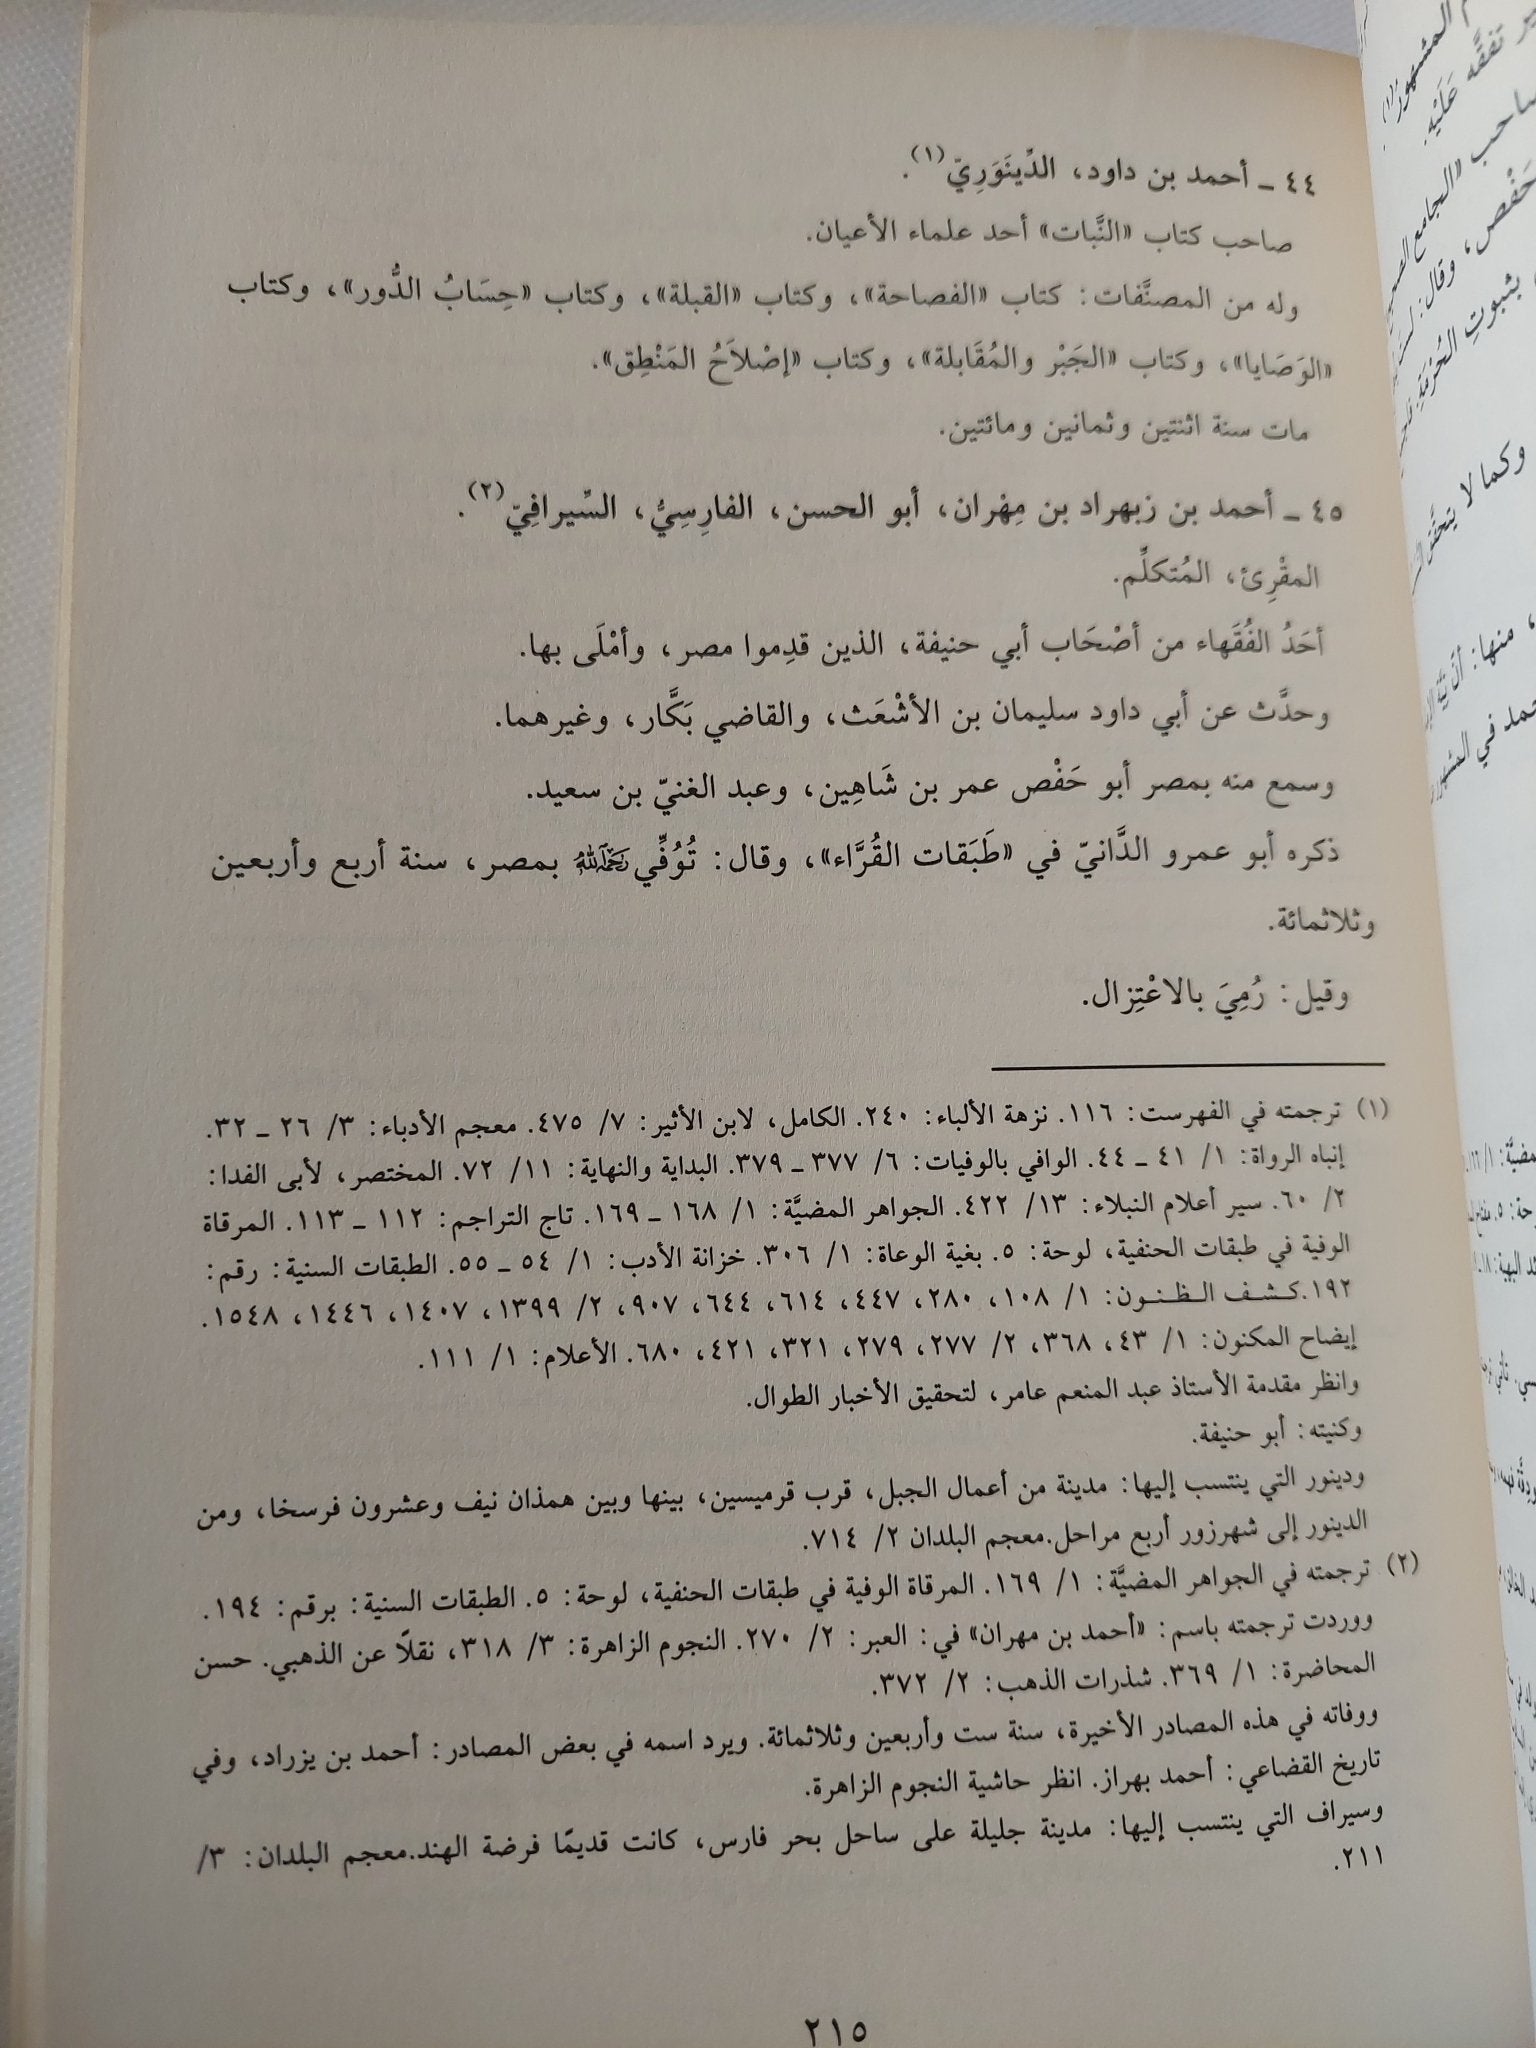 ٤٤ ــ أحمد بن داود، الدِّينَوَرِيّ(١).
صاحب كتاب «النَّبات» أحد علماء الأعيان.
وله من المصنَّفات: كتاب «الفصاحة»، وكتاب «القبلة»، وكتاب «حِسَابُ الدُّور»، وكتاب
«الوَصَايا»، وكتاب «الجَبْر والمُقَابلة»، وكتاب «إصْلاَحُ المَنْطِق».
مات سنة اثنتين وثمانين ومائتين.
٤٥ ــ أحمد بن زبهراد بن مِهْران، أبو الحسن، الفارِسِيُّ، السِّيرافِيّ(٢).
المقْرِئ، المُتكلِّم.
أحَدُ الفُقَهاء من أصْحَاب أبي حنيفة، الذين قدِموا مصر، وأمْلَى بها.
وحدَّث عن أبي داود سليمان بن الأشْعَث، والقاضي بَكَّار، وغيرهما.
وسمع منه بمصر أبو حَفْص عمر بن شَاهِين، وعبد الغنيّ بن سعيد.
ذكره أبو عمرو الدَّانيّ في «طَبَقات القُرَّاء»، وقال: تُوُفِّي رحمه الله بمصر، سنة أربع وأربعين
وثلاثمائة.
وقيل: رُمِيَ بالاعْتِزال.
(١) ترجمته في الفهرست: ١١٦. نزهة الألباء: ٢٤٠. الكامل، لابن الأثير: ٧/ ٤٧٥. معجم الأدباء: ٣/ ٢٦ ــ ٣٢.
إنباه الرواة: ١/ ٤١ ــ ٤٤. الوافي بالوفيات: ٦/ ٣٧٧ ــ ٣٧٩. البداية والنهاية: ١١/ ٧٢. المختصر، لأبى الفدا:
٢/ ٦٠. سير أعلام النبلاء: ١٣/ ٤٢٢. الجواهر المضيَّة: ١/ ١٦٨ ــ ١٦٩. تاج التراجم: ١١٢ ــ ١١٣. المرقاة
الوفية في طبقات الحنفية، لوحة: ٥. بغية الوعاة: ١/ ٣٠٦. خزانة الأدب: ١/ ٥٤ ــ ٥٥. الطبقات السنية: رقم:
١٩٢.كشف الظنون: ١/ ١٠٨، ٢٨٠، ٤٤٧، ٦١٤، ٦٤٤، ٩٠٧، ٢/ ١٣٩٩، ١٤٠٧، ١٤٤٦، ١٥٤٨.
إيضاح المكنون: ١/ ٤٣، ٣٦٨، ٢/ ٢٧٧، ٢٧٩، ٣٢١، ٤٢١، ٦٨٠. الأعلام: ١/ ١١١.
وانظر مقدمة الأستاذ عبد المنعم عامر، لتحقيق الأخبار الطوال.
وكنيته: أبو حنيفة.
ودينور التي ينتسب إليها: مدينة من أعمال الجبل، قرب قرميسين، بينها وبين همذان نيف وعشرون فرسخا، ومن
الدينور إلى شهرزور أربع مراحل.معجم البلدان ٢/ ٧١٤.
(٢) ترجمته في الجواهر المضيَّة: ١/ ١٦٩. المرقاة الوفية في طبقات الحنفية، لوحة: ٥. الطبقات السنية: برقم: ١٩٤.
ووردت ترجمته باسم: «أحمد بن مهران» في: العبر: ٢/ ٢٧٠. النجوم الزاهرة: ٣/ ٣١٨، نقلاً عن الذهبي. حسن
المحاضرة: ١/ ٣٦٩. شذرات الذهب: ٢/ ٣٧٢.
ووفاته في هذه المصادر الأخيرة، سنة ست وأربعين وثلاثمائة. ويرد اسمه في بعض المصادر: أحمد بن يزراد، وفي
تاريخ القضاعي: أحمد بهراز. انظر حاشية النجوم الزاهرة.
وسيراف التي ينتسب إليها: مدينة جليلة على ساحل بحر فارس، كانت قديمًا فرضة الهند.معجم البلدان: ٣/
٢١١.
٢١٥